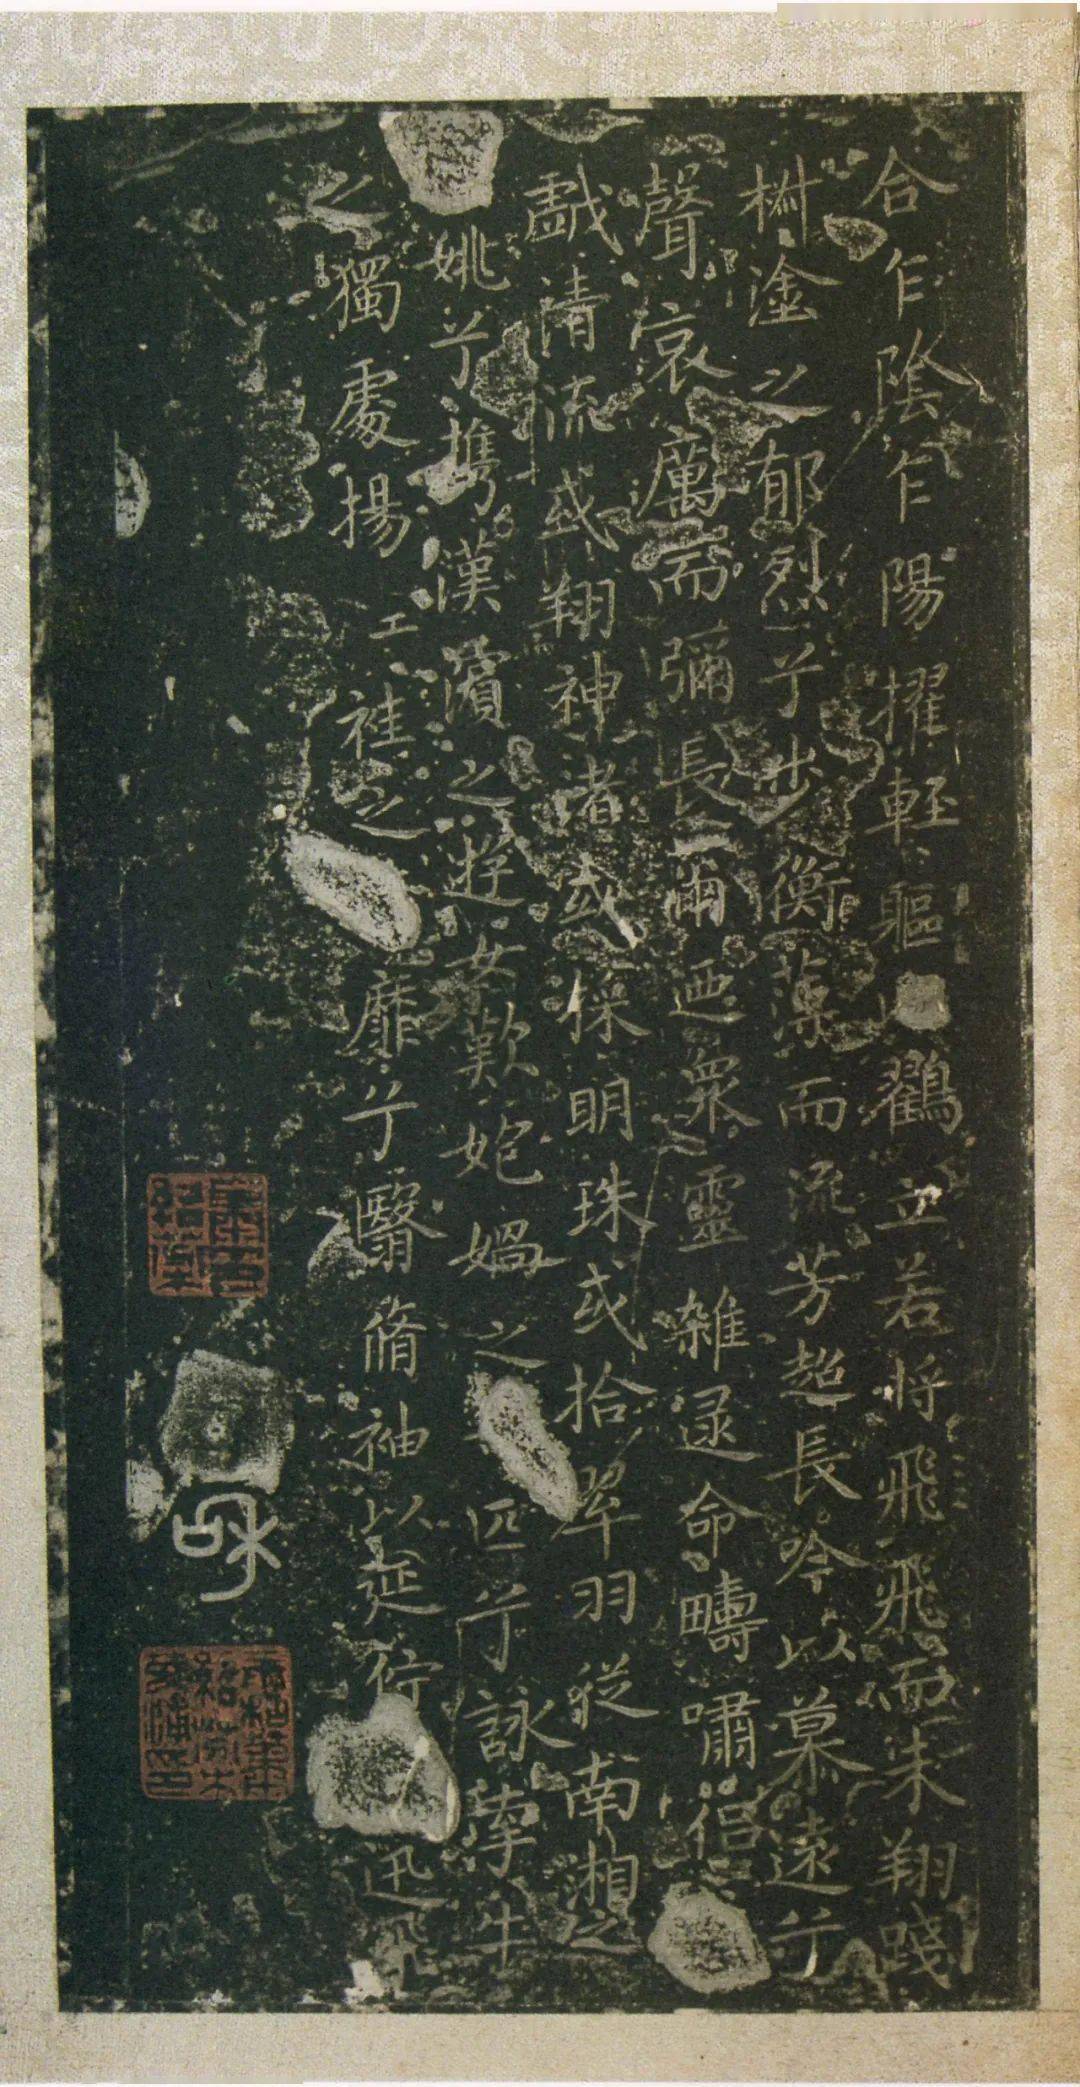 合乍陰乍陽擢輕軀以鶴立若将飛飛而未翔踐
椒塗之郁烈兮步衡薄而流芳超長吟以慕遠兮
聲哀厲而彌長爾迺衆靈雜逯命疇嘯侣
戲清流或翔神渚或採明珠或拾翠羽從南湘之
姚兮攜漢濱之遊女歎匏媧之匹兮詠牽牛
之獨處揚袿之靡兮翳脩袖以延佇迅飛
和